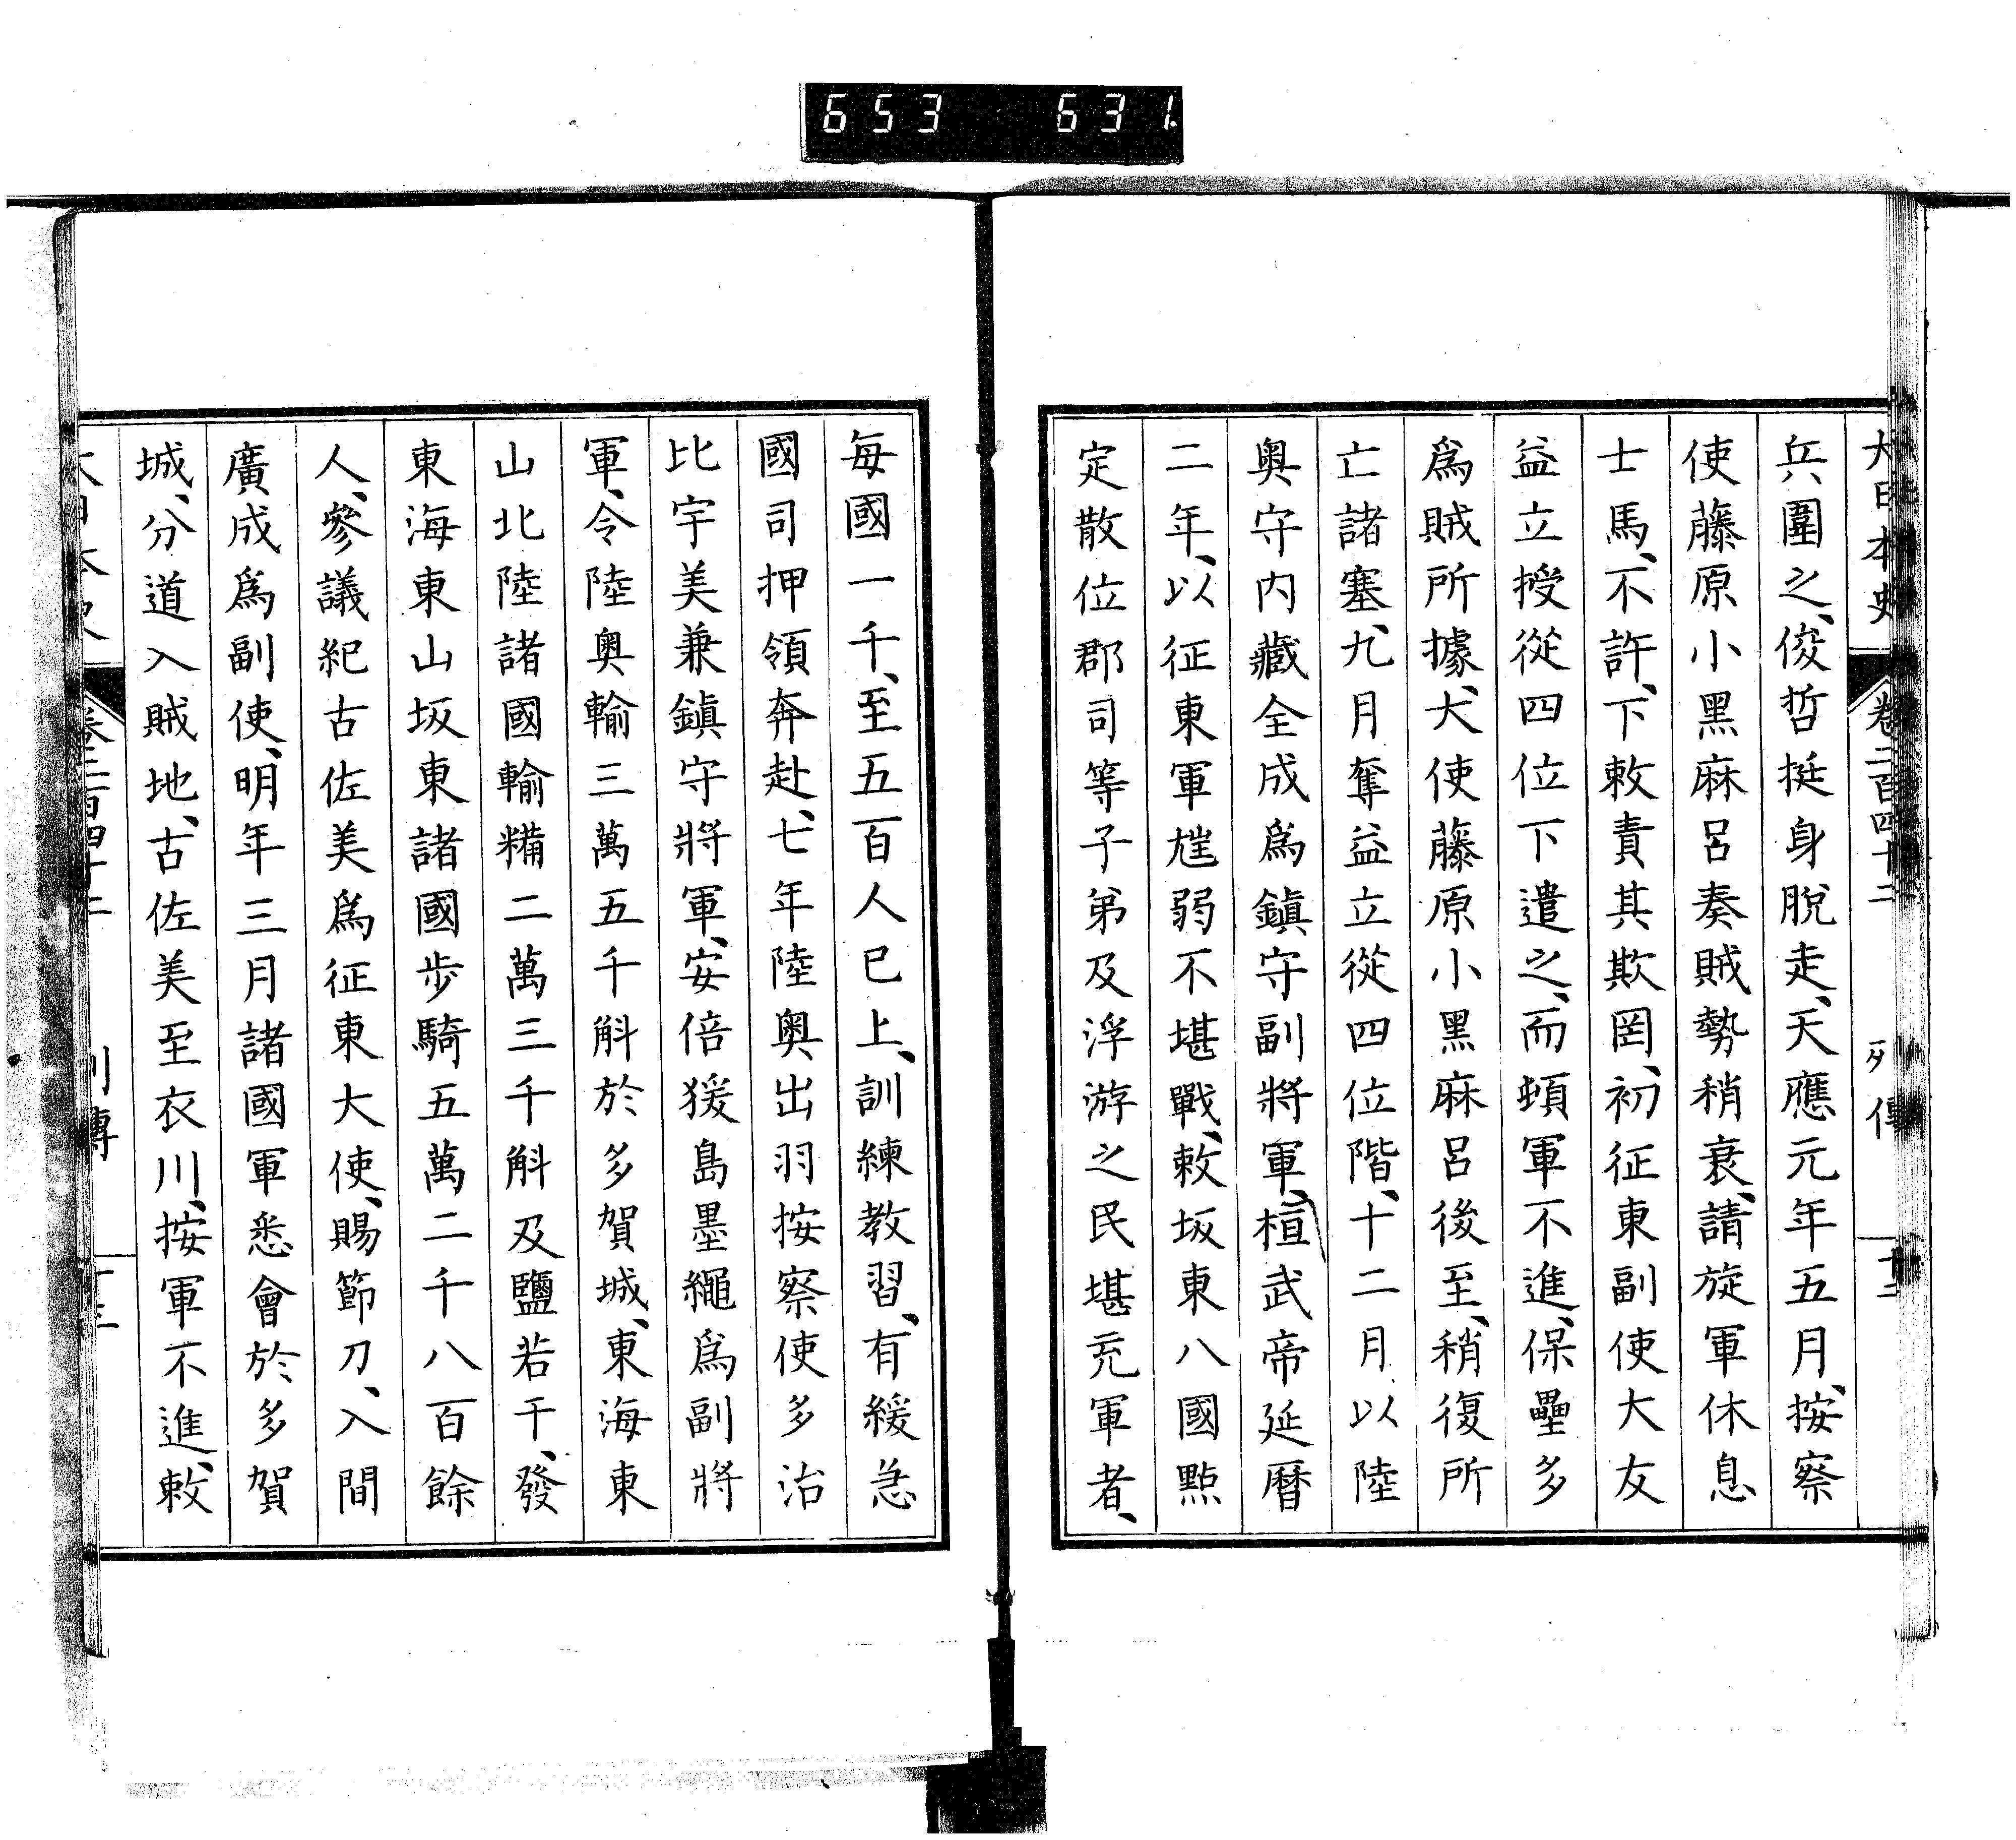 653 631
大日本史 卷二百四十二 列傳 十二
兵圍之、俊哲挺身脫走、天應元年五月、按察
使藤原小黑麻呂奏賊勢稍衰、請旋軍休息
士馬、不許、下敕責其欺罔、初征東副使大友
益立授從四位下遣之、而頓軍不進、保壘多
爲賊所據、大使藤原小黑麻呂後至、稍復所
亡諸塞、九月奪益立從四位階、十二月以陸
奧守内藏全成爲鎮守副將軍、桓武帝延曆
二年、以征東軍尫弱不堪戰、敕坂東八國點
定散位郡司等子弟及浮游之民堪充軍者、
每國一千、至五百人已上、訓練教習、有緩急
國司押領奔赴、七年陸奧出羽按察使多治
比宇美兼鎮守將軍、安倍猨島墨繩爲副將
軍、令陸奧輸三萬五千斛於多賀城、東海東
山北陸諸國輸糒二萬三千斛及鹽若干、發
東海東山坂東諸國步騎五萬二千八百餘
人、參議紀古佐美爲征東大使、賜節刀、入間
廣成爲副使、明年三月諸國軍悉會於多賀
城、分道入賊地、古佐美至衣川、按軍不進、敕
大日本史 卷二百四十二 列傳 十三